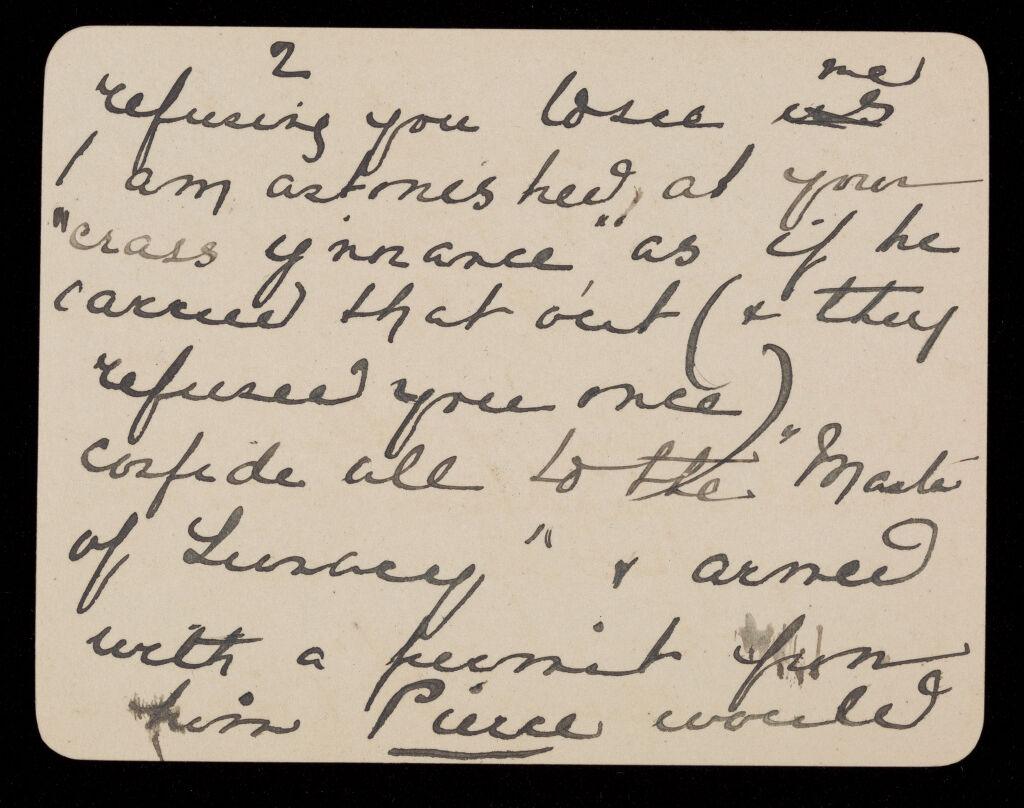 2
refusing you to see us me
I am astonished, at your
"crass ignorance" as if he
carried that out (& they
refused you once)
confide all to the "Master
of Lunacy" & armed
with a permit from
him Pierce would